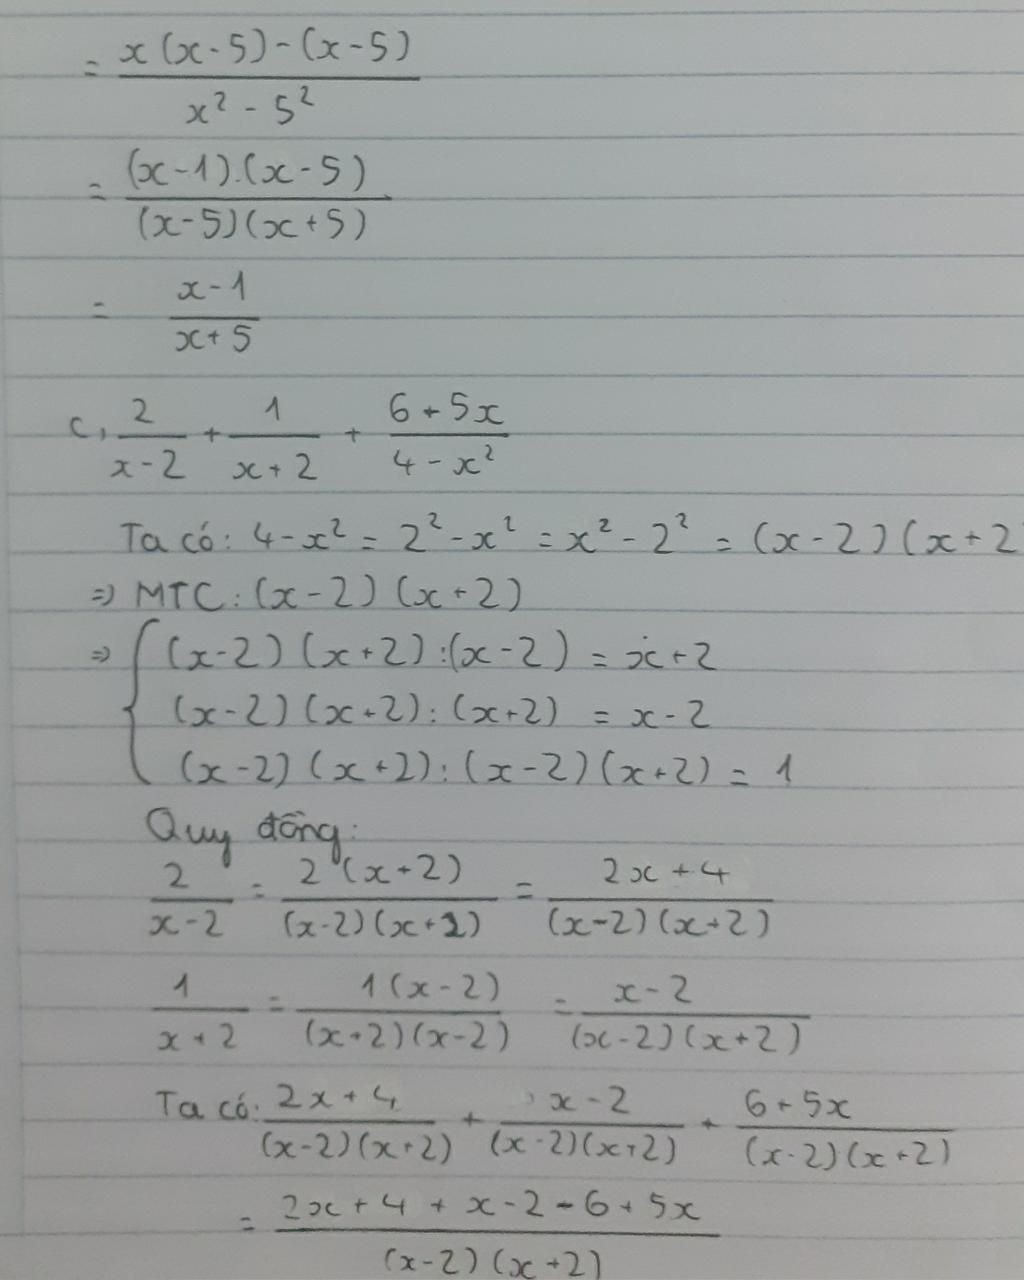 = \frac{x(x-5)-(x-5)}{x² - 5²}
= \frac{(x-1).(x-5)}{(x-5)(x+5)}
= \frac{x-1}{x+5}
c, \frac{2}{x-2} + \frac{1}{x+2} + \frac{6+5x}{4-x²}
Ta có: 4-x² = 2²-x² = x²-2² = (x-2)(x+2
=> MTC: (x-2)(x+2)
=> { (x-2)(x+2):(x-2) = x+2
(x-2)(x+2):(x+2) = x-2
(x-2)(x+2):(x-2)(x+2) = 1
Quy đồng:
\frac{2}{x-2} = \frac{2(x+2)}{(x-2)(x+2)} = \frac{2x+4}{(x-2)(x+2)}
\frac{1}{x+2} = \frac{1(x-2)}{(x+2)(x-2)} = \frac{x-2}{(x-2)(x+2)}
Ta có: \frac{2x+4}{(x-2)(x+2)} + \frac{x-2}{(x-2)(x+2)} + \frac{6+5x}{(x-2)(x+2)}
= \frac{2x+4+x-2-6+5x}{(x-2)(x+2)}